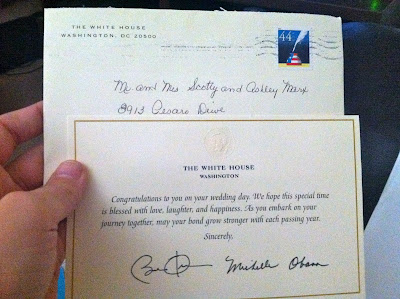 THE WHITE HOUSE
WASHINGTON, DC 20500
44
Mr. and Mrs Scotty and Ashley Marx
3913 Cesaro Drive
THE WHITE HOUSE
WASHINGTON
Congratulations to you on your wedding day. We hope this special time
is blessed with love, laughter, and happiness. As you embark on your
journey together, may your bond grow stronger with each passing year.
Sincerely,
Michelle Obama